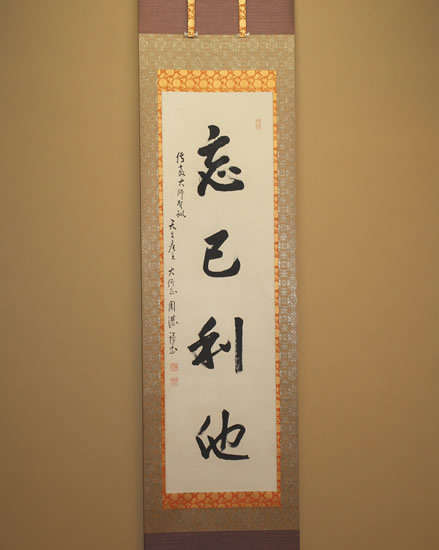 忘己利他
傳教大師聖訓 天台座主 大僧正 圓澄 謹書